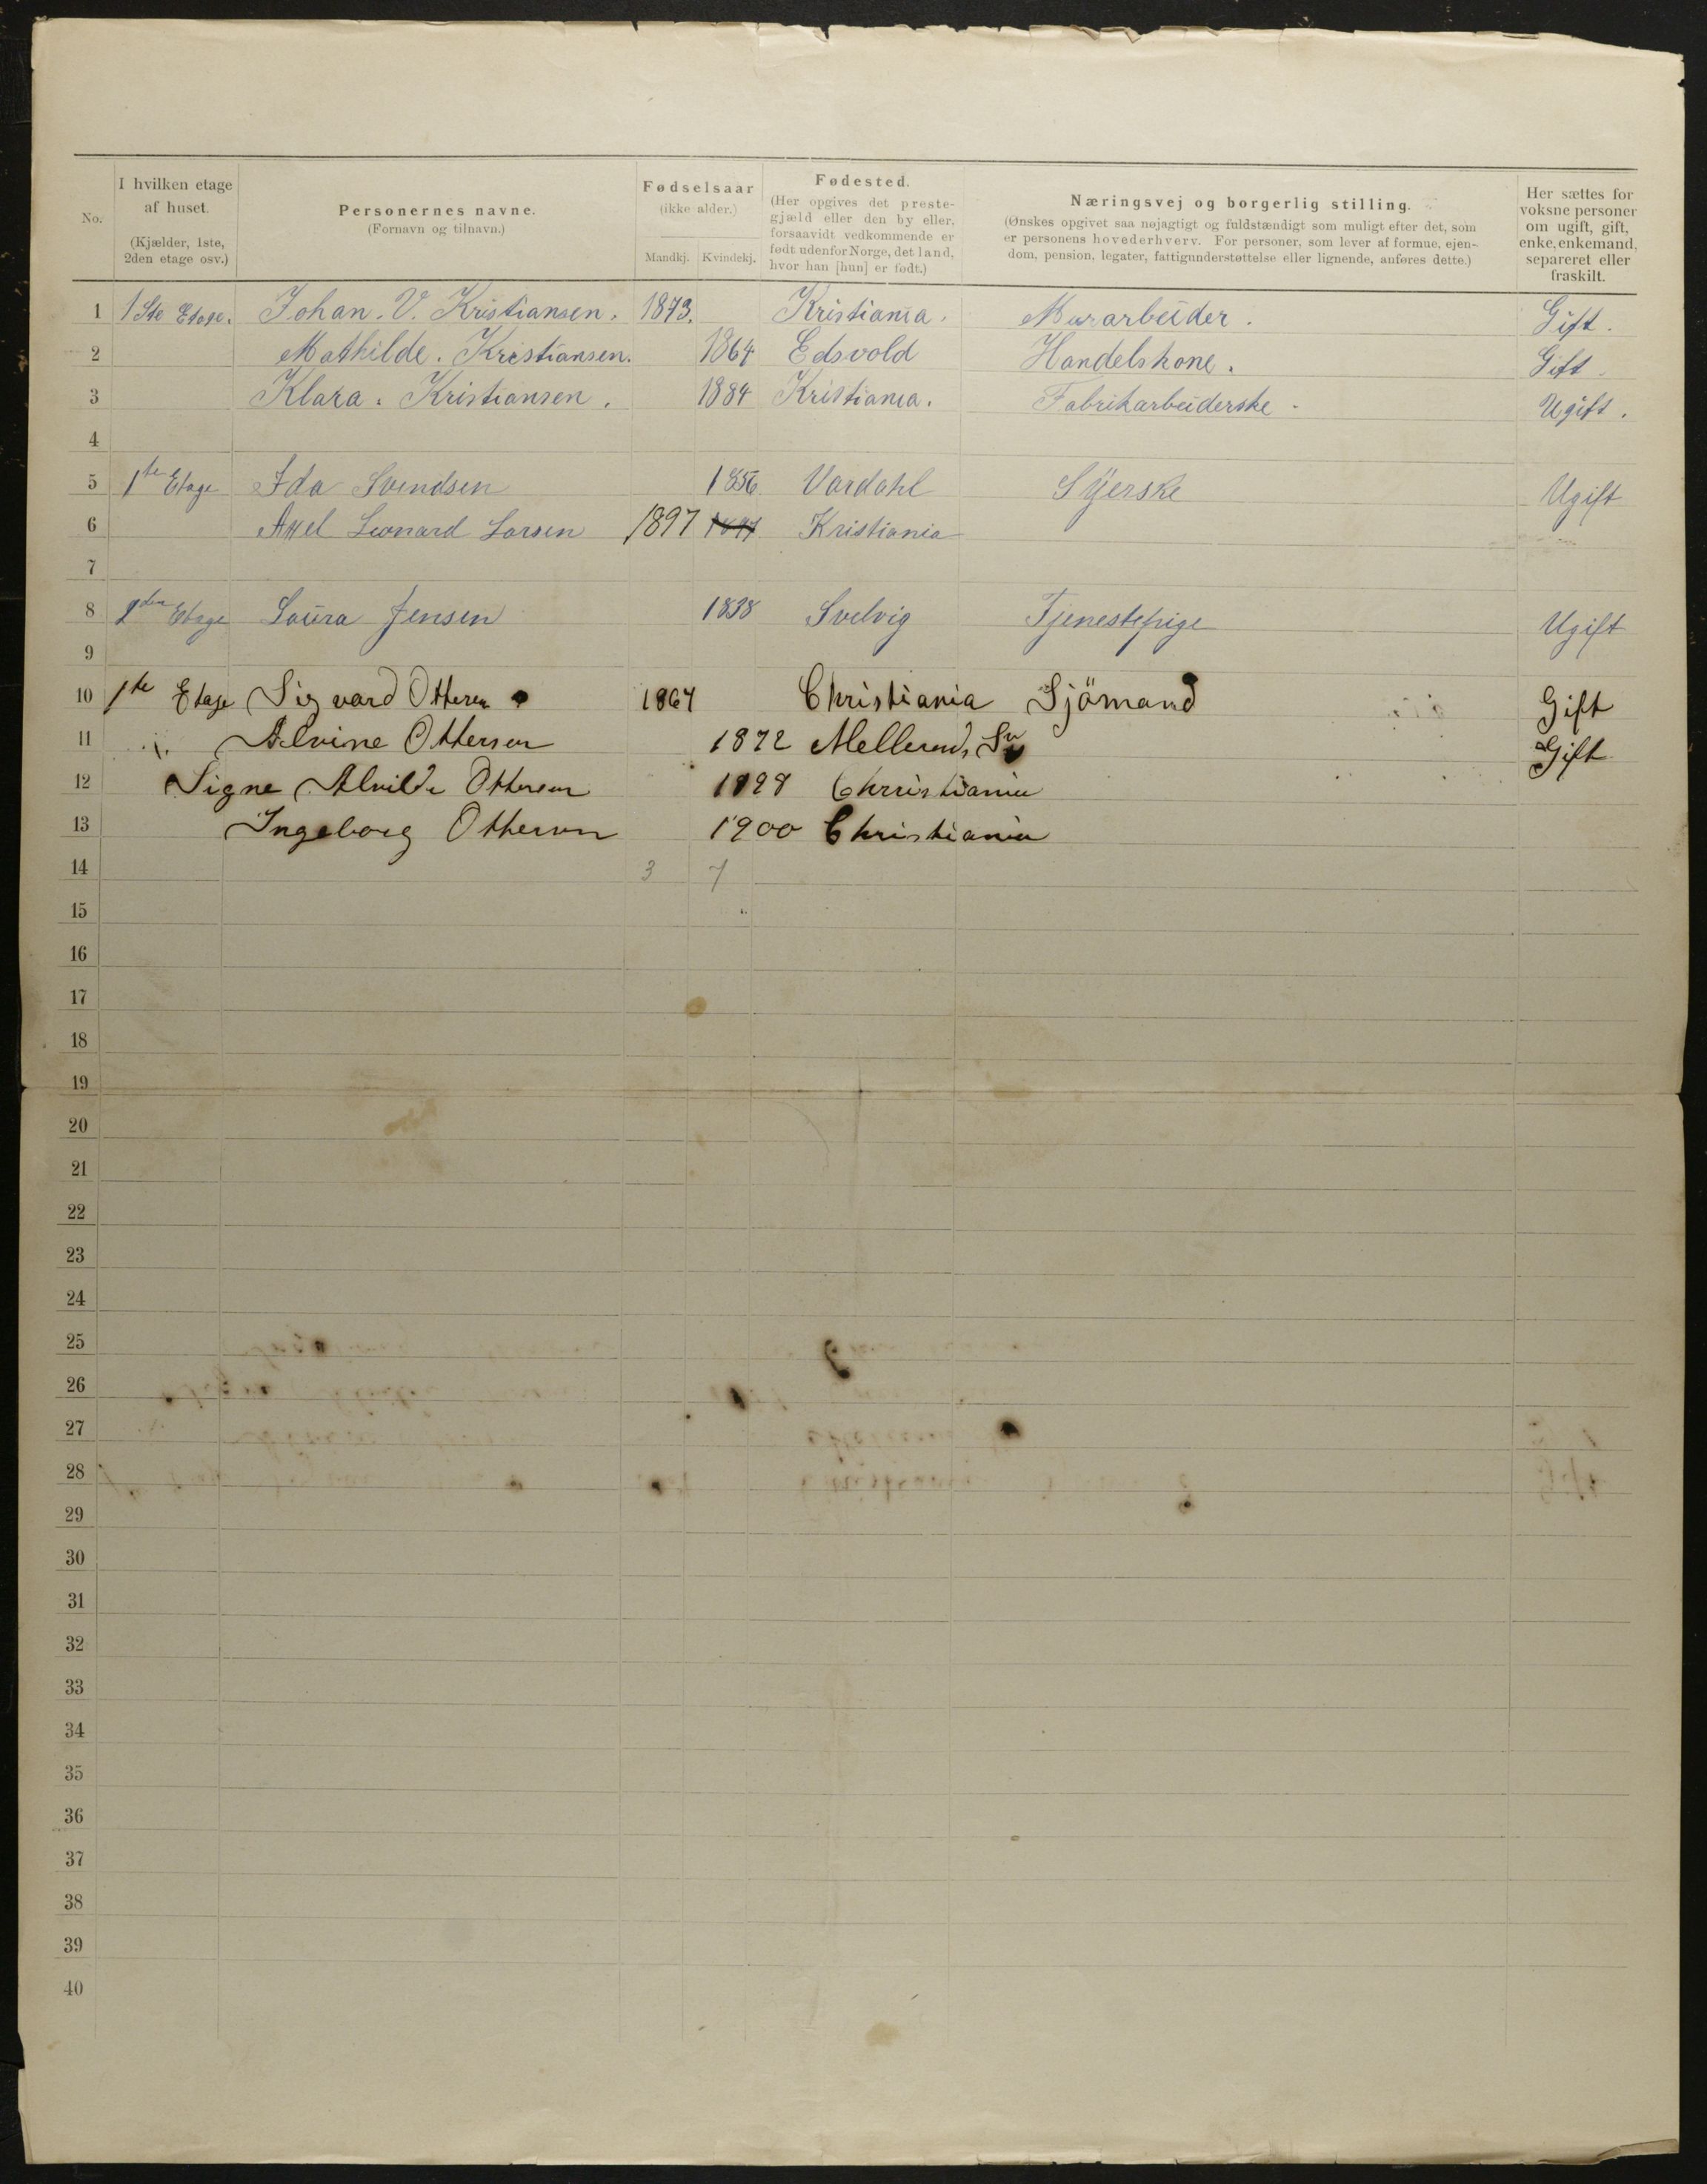 No. I hvilken etage af huset. (Kjælder, 1ste, 2den etage osv.) Personernes navne. (Fornavn og tilnavn.) Fødselsaar (ikke alder.) Mandkj. Kvindekj. Fødested. (Her opgives det prestegjæld eller den by eller, forsaavidt vedkommende er født udenfor Norge, det land, hvor han [hun] er født.) Næringsvej og borgerlig stilling. (Ønskes opgivet saa nøjagtigt og fuldstændigt som muligt efter det, som er personens hovederhverv. For personer, som lever af formue, ejendom, pension, legater, fattigunderstøttelse eller lignende, anføres dette.) Her sættes for voksne personer om ugift, gift, enke, enkemand, separeret eller fraskilt.
1 1Ste Etage. Johan. V. Kristiansen. 1873. Kristiania. Murarbeider. Gift.
2 Mathilde. Kristiansen. 1864 Edsvold Handelskone. Gift.
3 Klara. Kristiansen. 1884 Kristiania. Fabrikarbeiderske. Ugift.
4
5 1te Etage Ida Svendsen 1856 Vardahl Syerske Ugift
6 Axel Leonard Larsen 1897 Kristiania
7
8 2den Etage Laura Jensen 1838 Svelvig Tjenestepige Ugift
9
10 1te Etage Sigvard Ottersen 1867 Christiania Sjömand Gift
11 Alvine Ottersen 1872 Gift
12 Signe Alvilde Ottersen 1898 Christiania
13 Ingeborg Ottersen 1900 Christiania
14 3 7
15
16
17
18
19
20
21
22
23
24
25
26
27
28
29
30
31
32
33
34
35
36
37
38
39
40